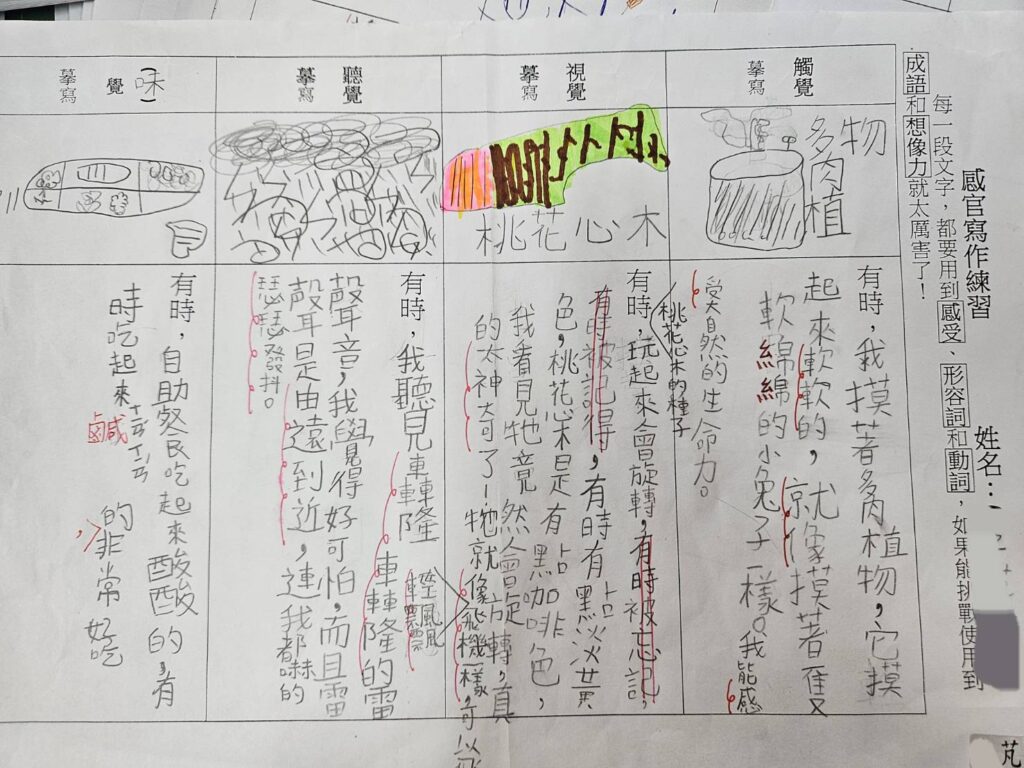 感官寫作練習
姓名：
每一段文字，都要用到感受、形容詞和動詞，如果能挑戰使用到
成語和想像力就太厲害了！
觸覺
摹寫
物
多肉植
有時，我摸著多肉植物，它摸
起來軟軟的，就像摸著
軟綿綿的小兔子一樣。我能感
受大自然的生命力。
視覺
摹寫
桃花心木
桃花心木的種子
有時，玩起來會旋轉，有時被忘記，
有時被記得，有時有點黑淡黃
色，桃花心木是有點黑咖啡色，
我看見牠竟然會旋轉，真
的太神奇了！牠就像飛機一樣，可以飛
聽覺
摹寫
有時，我聽見轟隆轟隆的雷
聲音，我覺得好可怕，而且雷
聲是由遠到近，連我都嚇的
瑟瑟發抖。
味覺
摹寫
有時，自助餐民吃起來酸酸的，有
時吃起來ㄒㄧㄢˊㄒㄧㄢˊ的非常好吃
鹹
芃